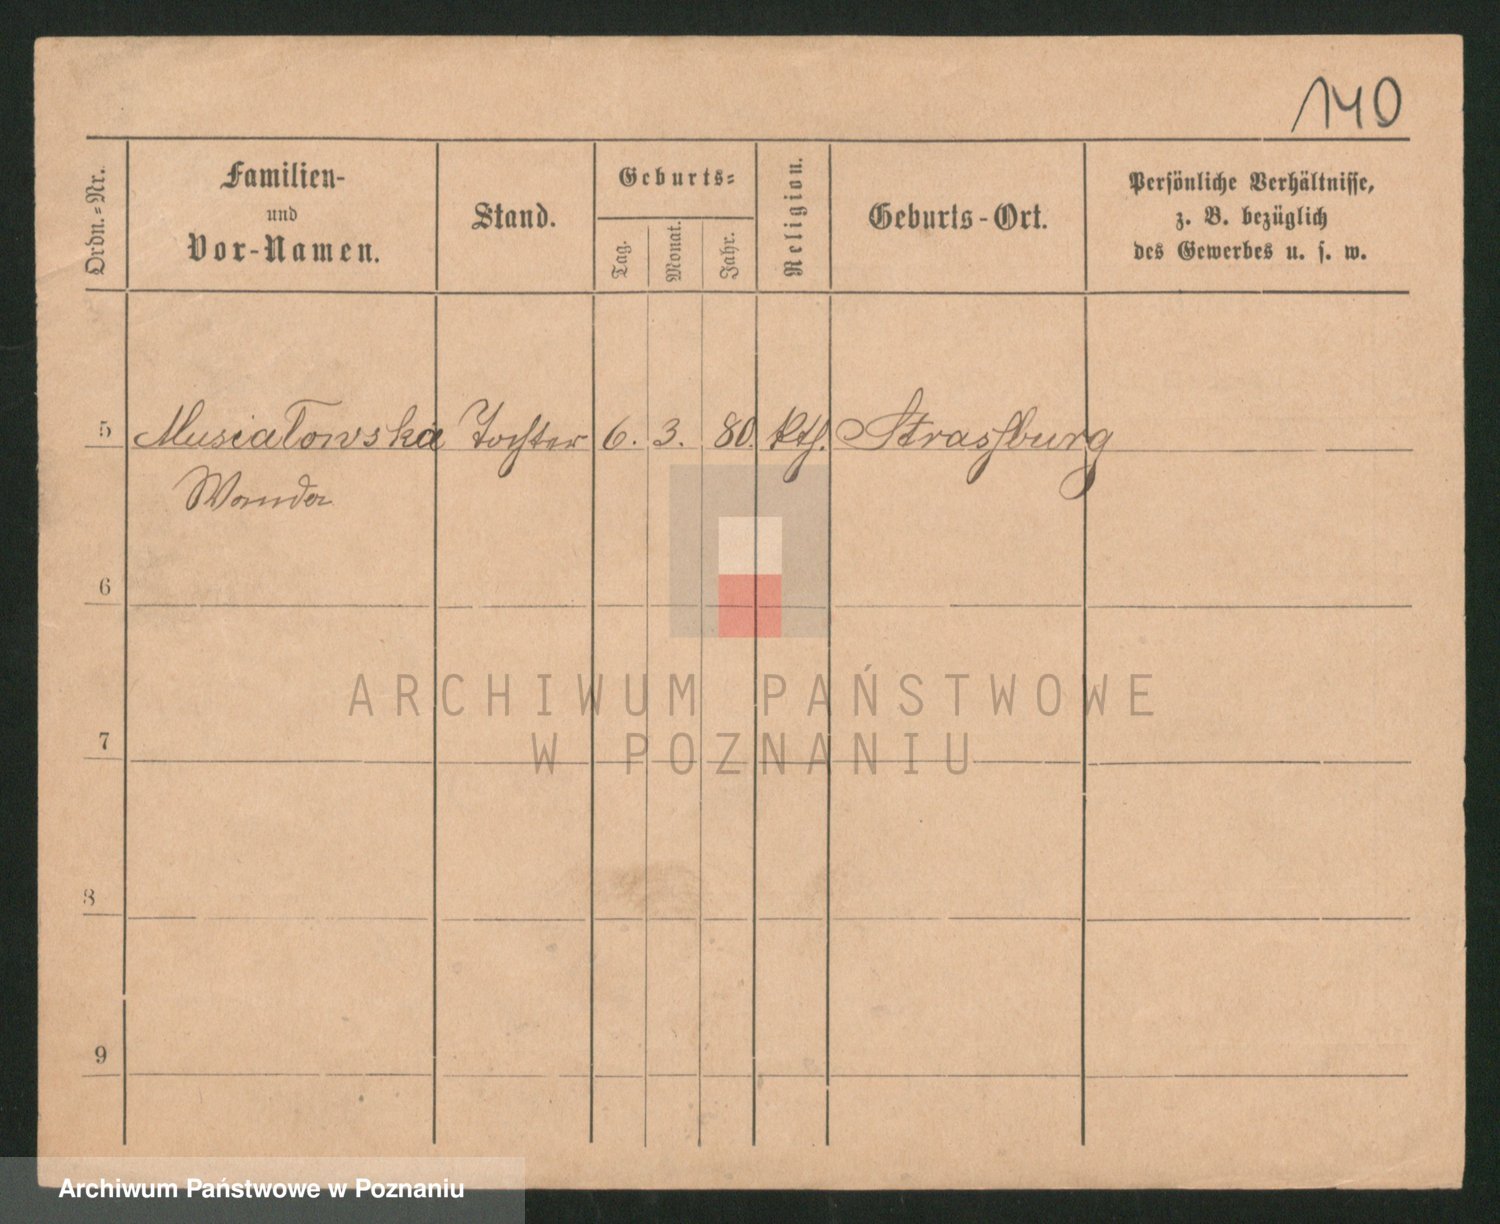 140
Ordn.-Nr.
Familien-
und
Vor-Namen.
Stand.
Geburts-
Tag.
Monat.
Jahr.
Religion.
Geburts-Ort.
Persönliche Verhältnisse,
z. B. bezüglich
des Gewerbes u. s. w.
5 Musiatowska Tochter 6. 3. 80. kth. Strassburg
Wanda
6
7
8
9
ARCHIWUM PAŃSTWOWE
W POZNANIU
Archiwum Państwowe w Poznaniu